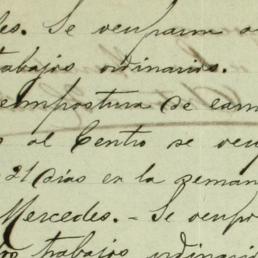 es. Se ocuparon
trabajos ordinarios.
compostura de cam
al Centro se ocu
21 días en la semana
Mercedes. - Se ocupo
trabajos ordinario